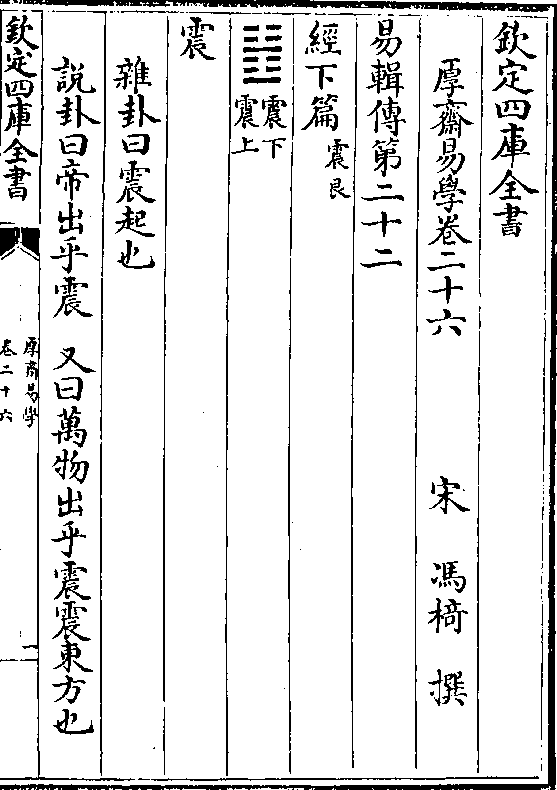 欽定四庫全書
厚齋易學卷二十六
宋 馮椅 撰
易輯傳第二十二
經下篇 震艮
䷲ 震下震上
震
雜卦曰震起也
說卦曰帝出乎震 又曰萬物出乎震震東方也
欽定四庫全書
厚齋易學
卷二十六
一